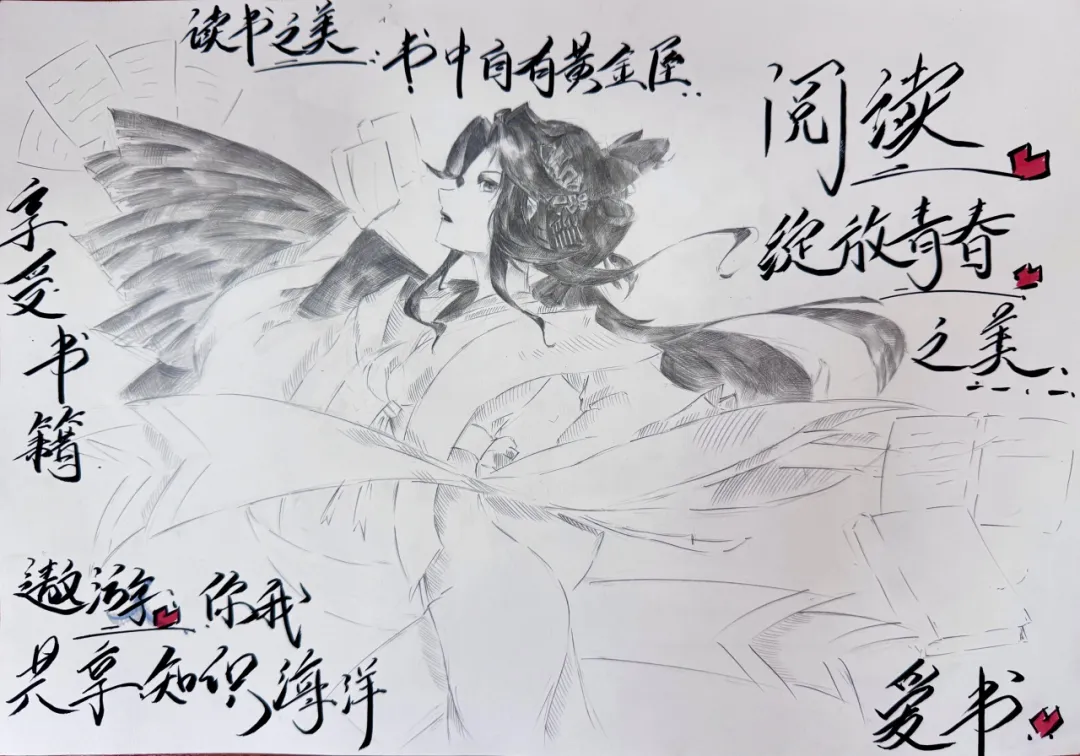 读书之美：书中自有黄金屋..
阅读
绽放青春
之美..
享受书籍
遨游：你我
共享知识海洋
爱书..